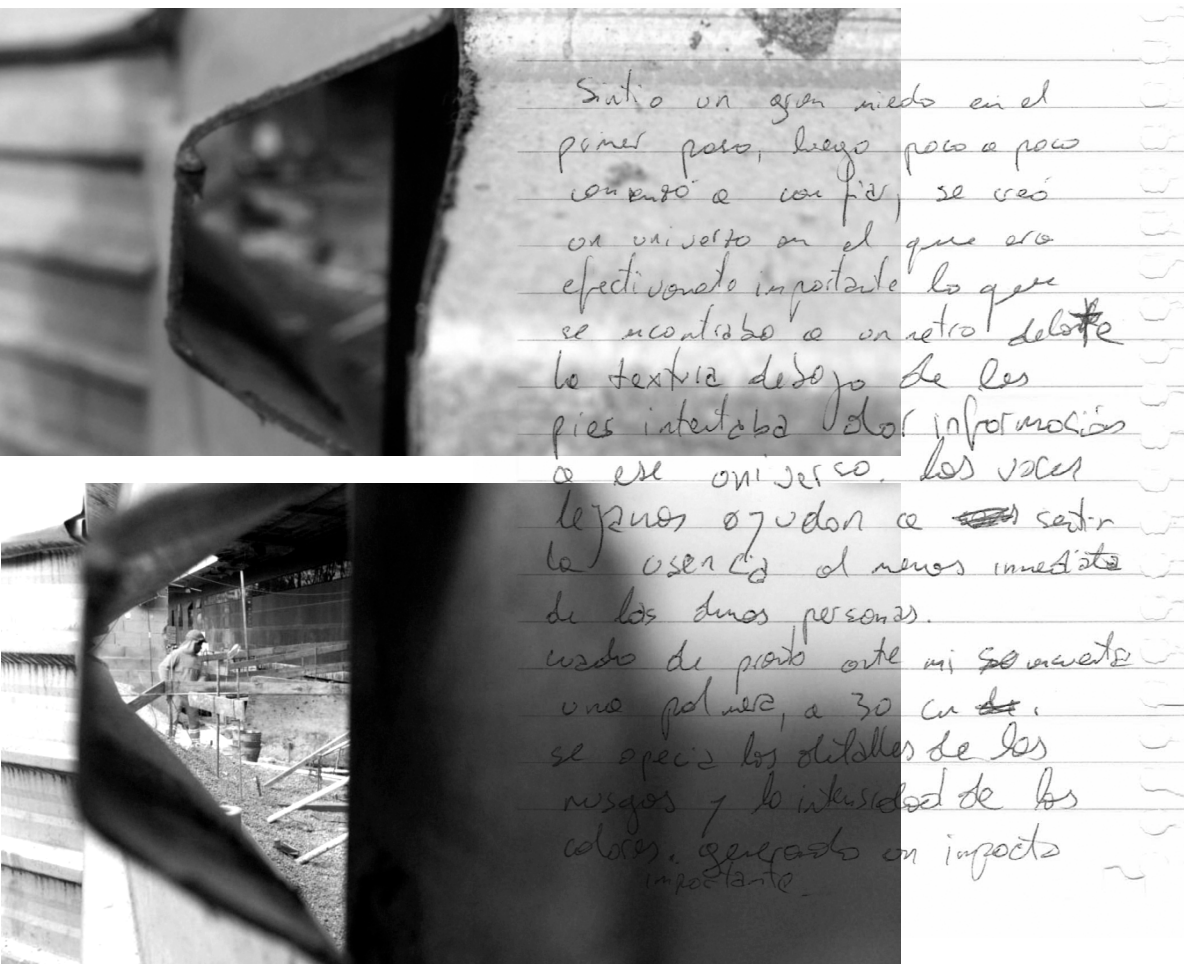 Sintio un gran miedo en el
primer paso, luego poco a poco
comenzó a confiar, se creó
un universo en el que era
efectivamente importante lo que
se encontraba a un metro delante
la textura debajo de los
pies intentaba dar información
a ese universo. las voces
lejanas ayudan a sentir
la usencia al menos inmediata
de las demas personas.
cuado de pronto ante mi se encuentra
una palmera, a 30 cm.
se apecia los detalles de los
musgos y la intensidad de los
colores. generando un impacto
importante